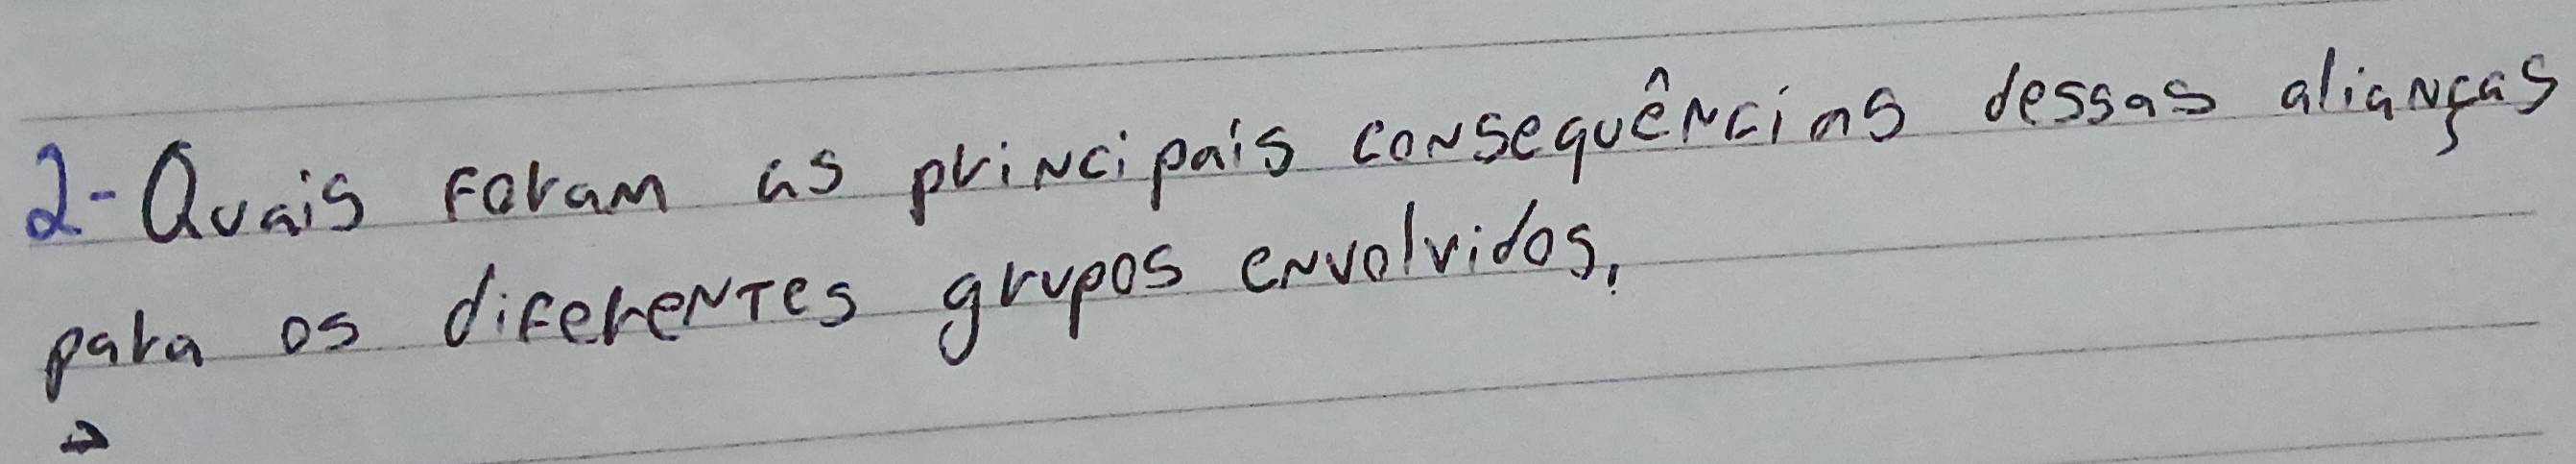 2- Quais foram as principais consequências dessas alianças
para os diferentes grupos envolvidos.
→